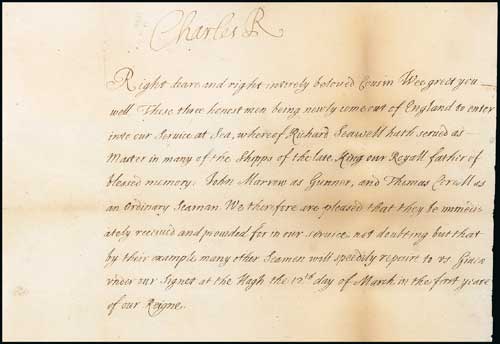 Charles R
Right deare and right intirely beloved Cousin Wee greet you
well. These three honest men being newly come out of England to enter
into our Service at Sea, whereof Richard Seawell hath served as
Master in many of the Shipps of the late King our Royall father of
blessed memory. John Marrow as Gunner, and Thomas as
an Ordinary Seaman We therefore are pleased that they be immedi
ately received and provided for in our service not doubting but that
by their example many other Seamen will speedily repaire to vs Given
vnder our Signet at the Hagh the 12th day of March in the first yeare
of our Reigne.